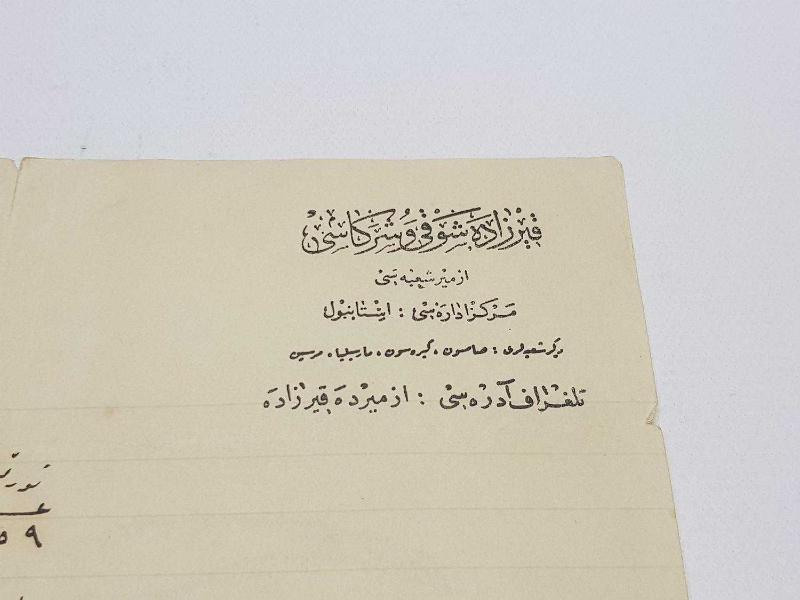 قیرزاده شوقی و شرکاسی
ازمیر شعبه سی
مرکز اداره سی : استانبول
دیکر شعبه لری : صامسون، کیره سون، مارسیلیا، مرسین
تلغراف آدره سی : ازمیرده قیرزاده
۵۹